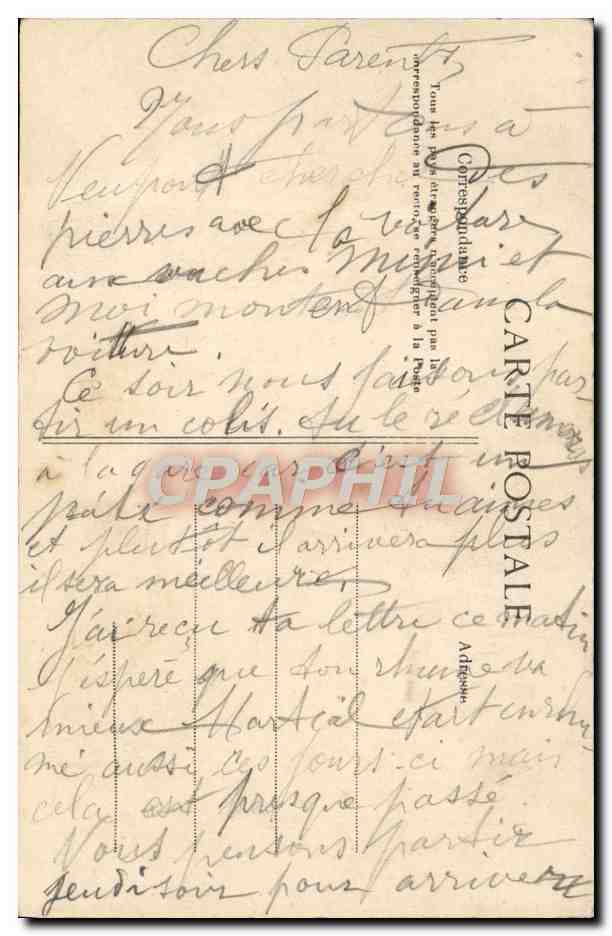 Chers Parents
Nous partons à
Veuyront chercher des
pierres avec la voiture
aux vaches Mimi et
moi montent dans la
voiture.
Ce soir nous faisons par-
tir un colis. tu le réclameras
à la gare car c'est un
pâté comme tu aimes
et plutôt il arrivera plus
il sera meilleure.
J'ai reçu ta lettre ce matin
J'espère que ton rhume va
mieux Martial etait enrhu-
mé aussi ces jours-ci mais
cela est presque passé.
Nous pensons partir
jeudi soir pour arriver
CARTE POSTALE
Tous les pays étrangers n'acceptent pas la
correspondance au recto, se renseigner à la Poste
Correspondance
Adresse
CPAPHIL